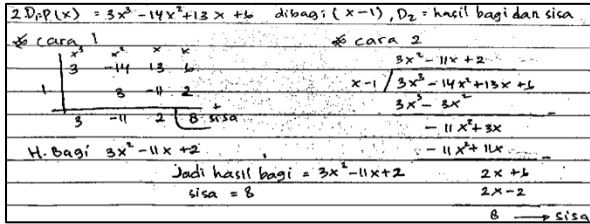 2. D₁ = P(x) = 3x³ - 14x² + 13x + 6 dibagi (x-1), D₂ = hasil bagi dan sisa
* cara 1
x³ x² x x
3 -14 13 6
1 3 -11 2 +
3 -11 2 8 sisa
H. Bagi 3x² - 11x + 2
* cara 2
3x² - 11x + 2
x-1 / 3x³ - 14x² + 13x + 6
3x³ - 3x²
- 11x² + 3x
- 11x² + 11x
2x + 6
2x - 2
8 → sisa
Jadi hasil bagi = 3x² - 11x + 2
sisa = 8